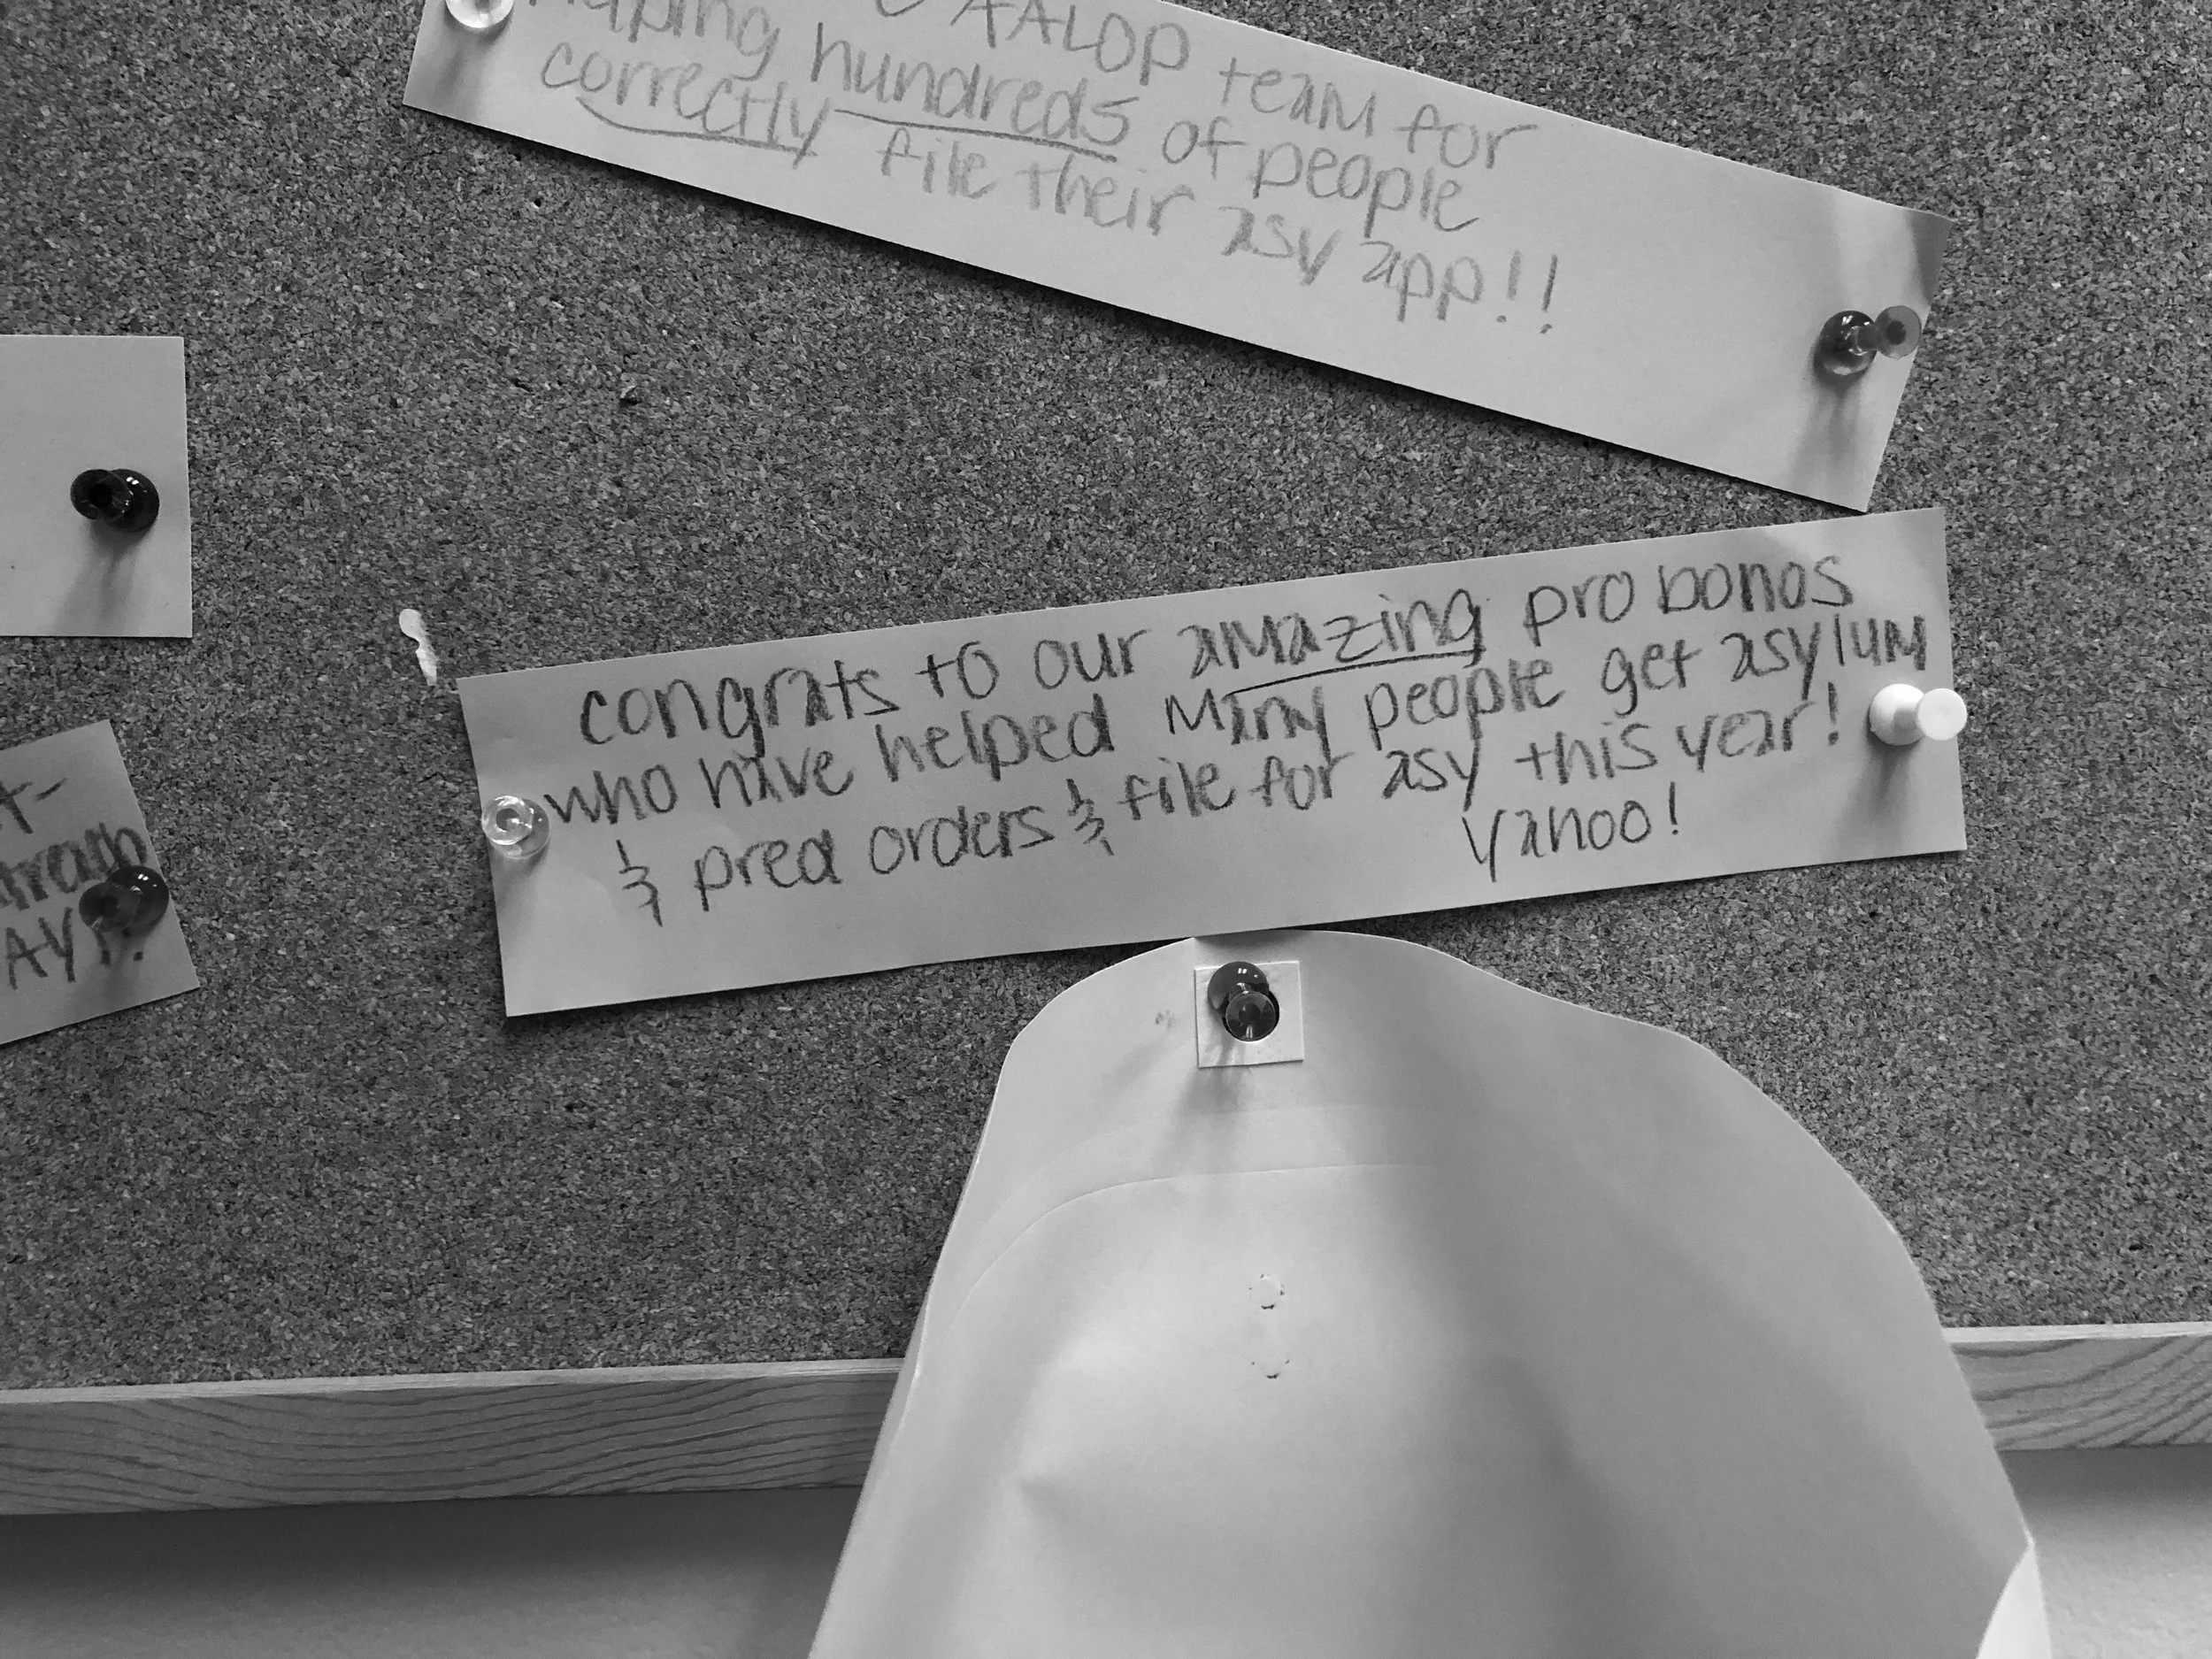 AALOP team for
helping hundreds of people
correctly file their asy app!!
congrats to our amazing pro bonos
who have helped many people get asylum
& pred orders & file for asy this year!
Yahoo!